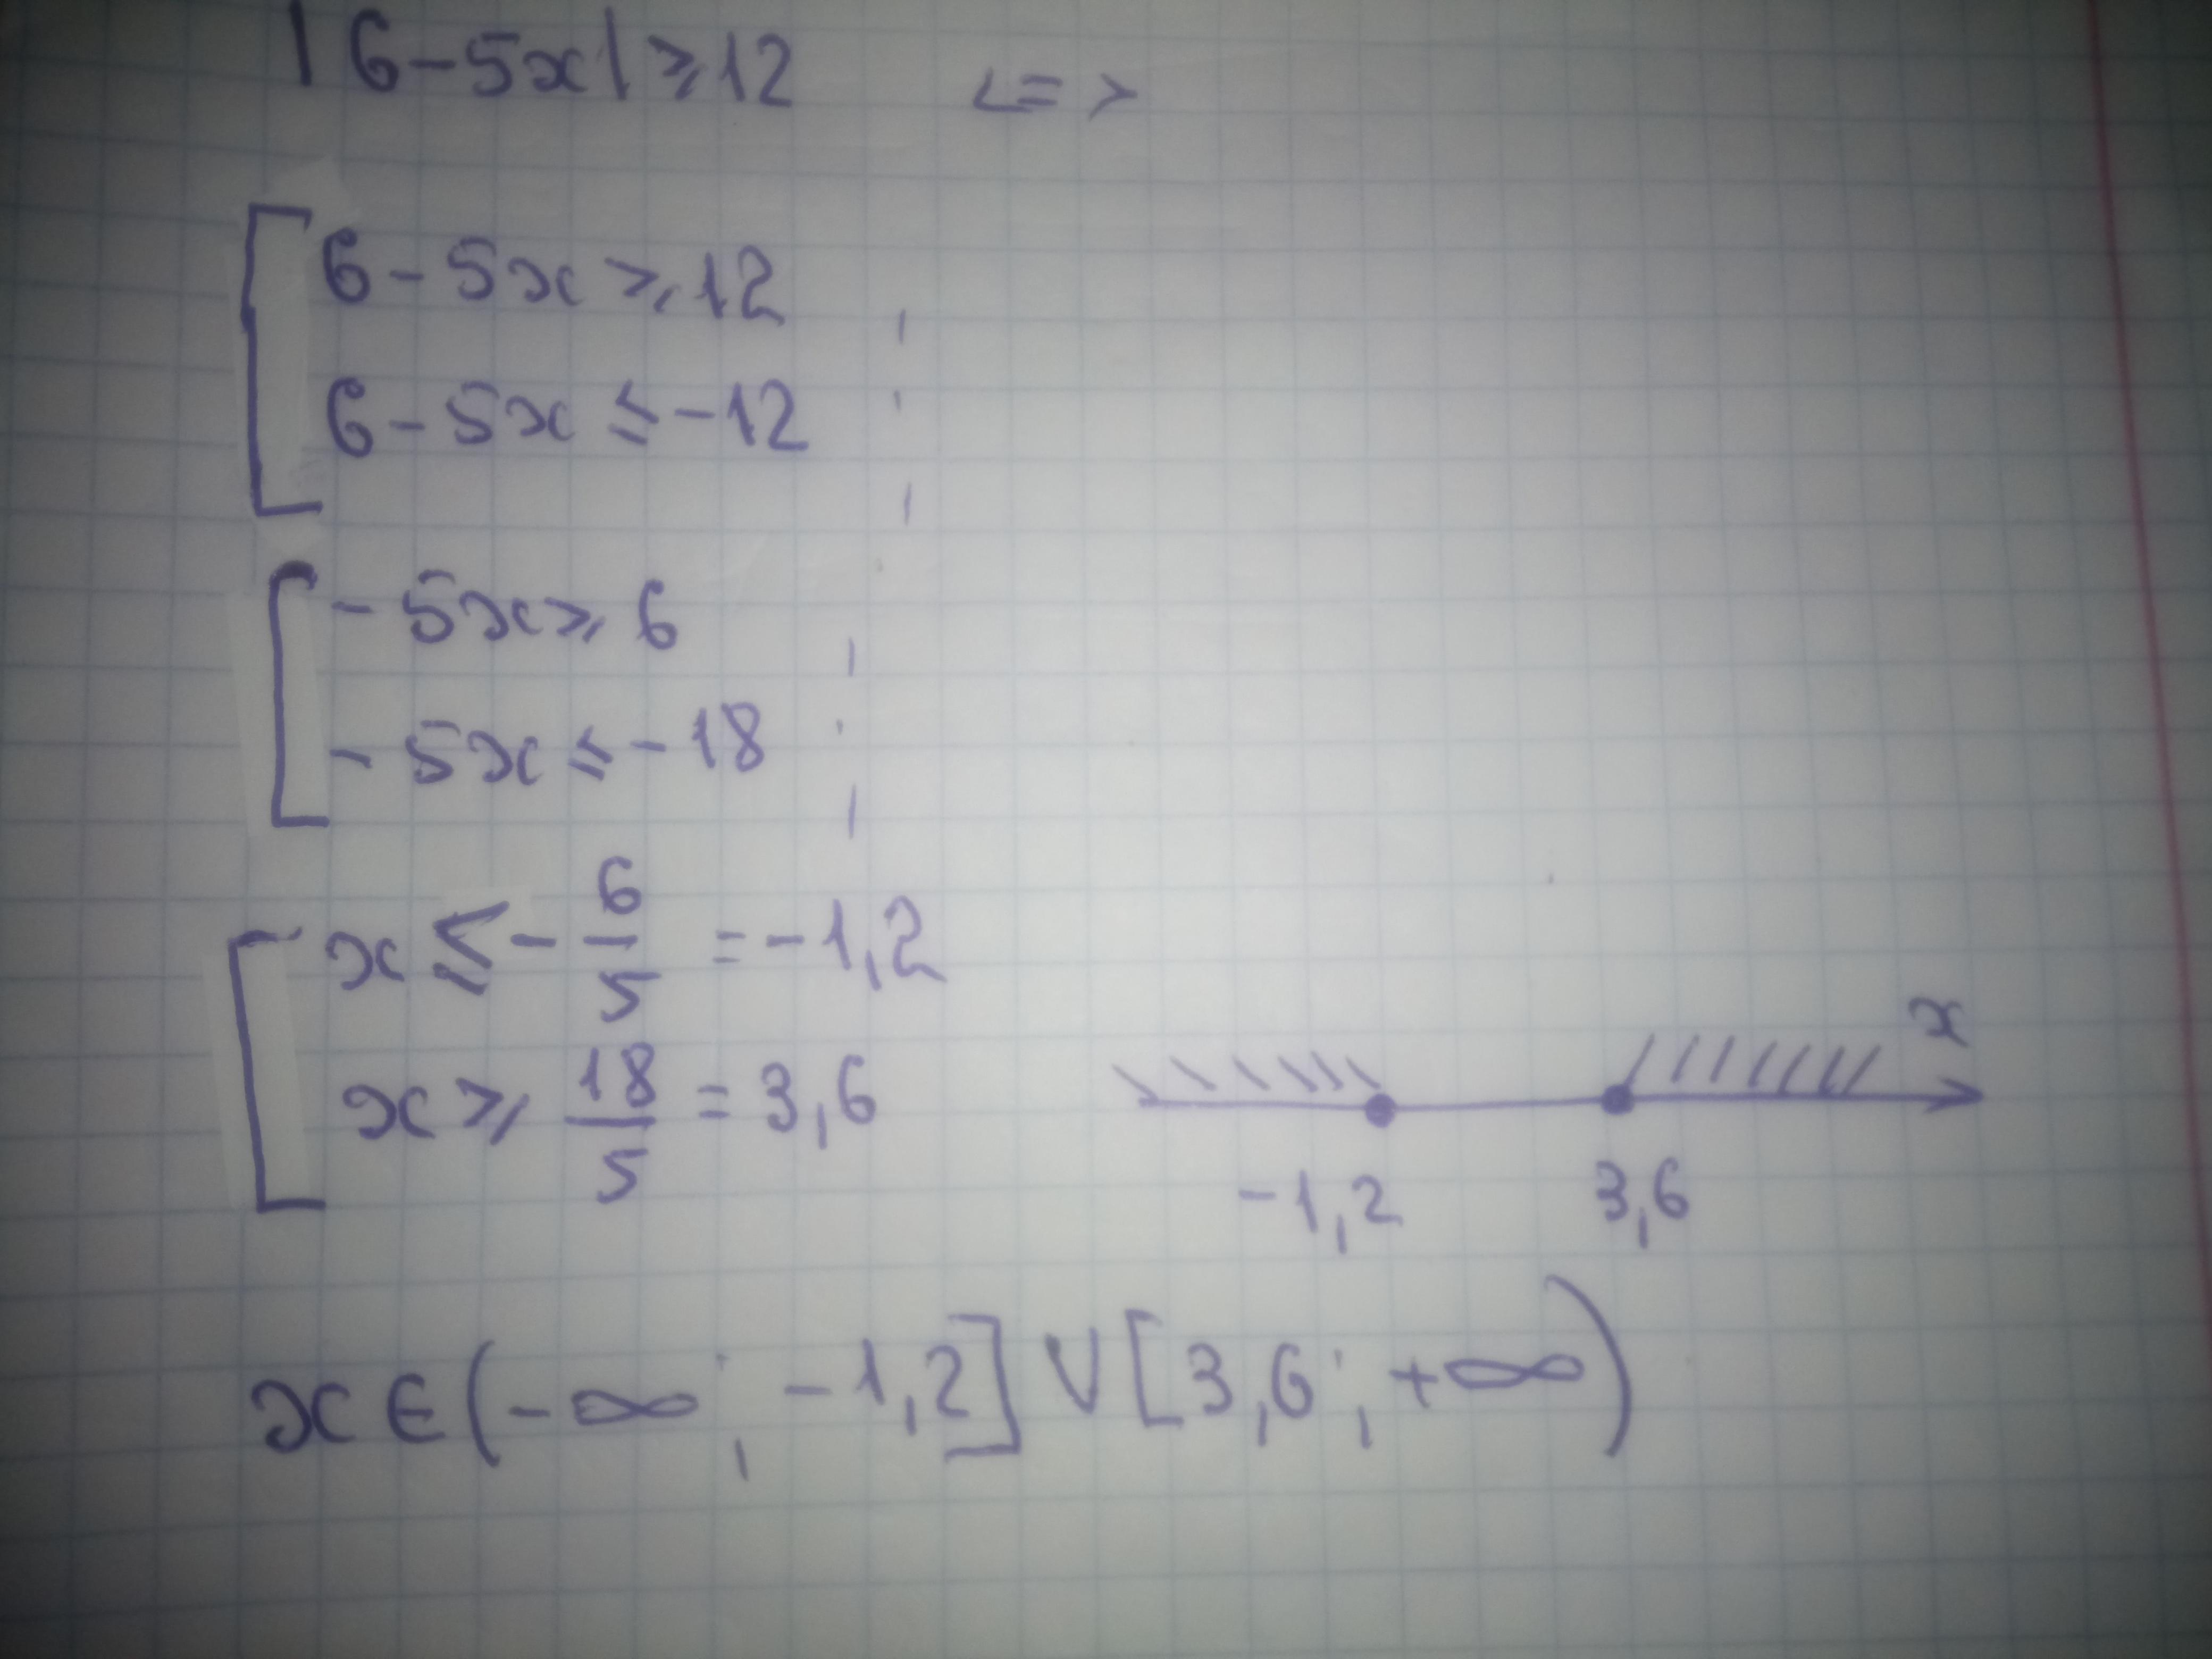 |6-5x|⩾12 <=>
6-5x⩾12
6-5x⩽-12
-5x⩾6
-5x⩽-18
x⩽-6/5=-1,2
x⩾18/5=3,6
x
-1,2 3,6
x∈(-∞;-1,2]∨[3,6;+∞)